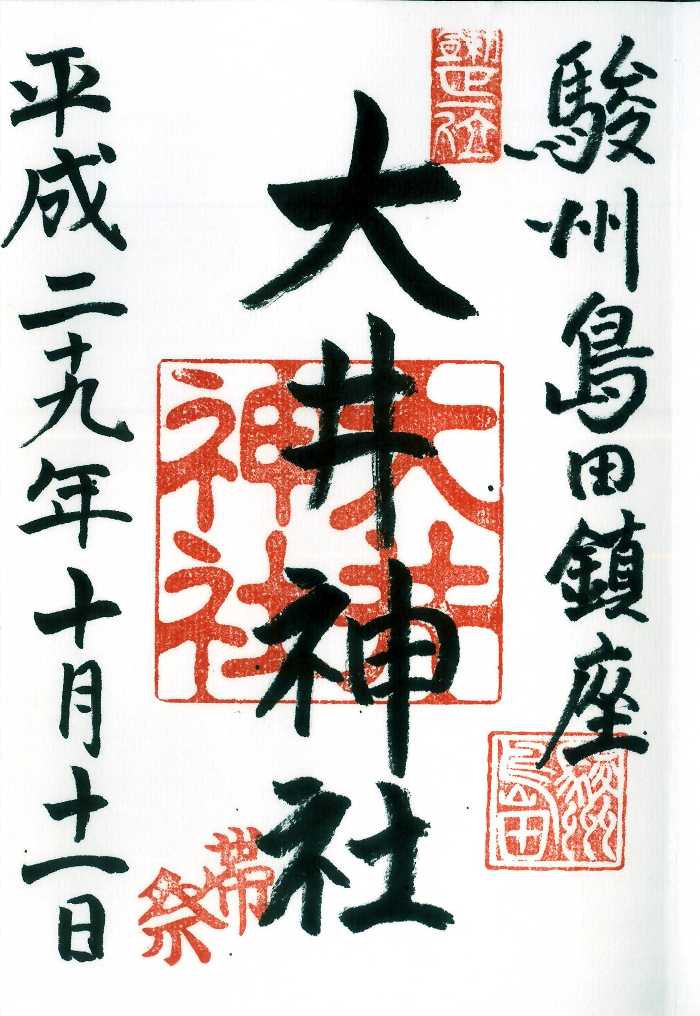 駿州島田鎮座
大井神社
平成二十九年十月十一日
大井
神社
帯
祭
島田